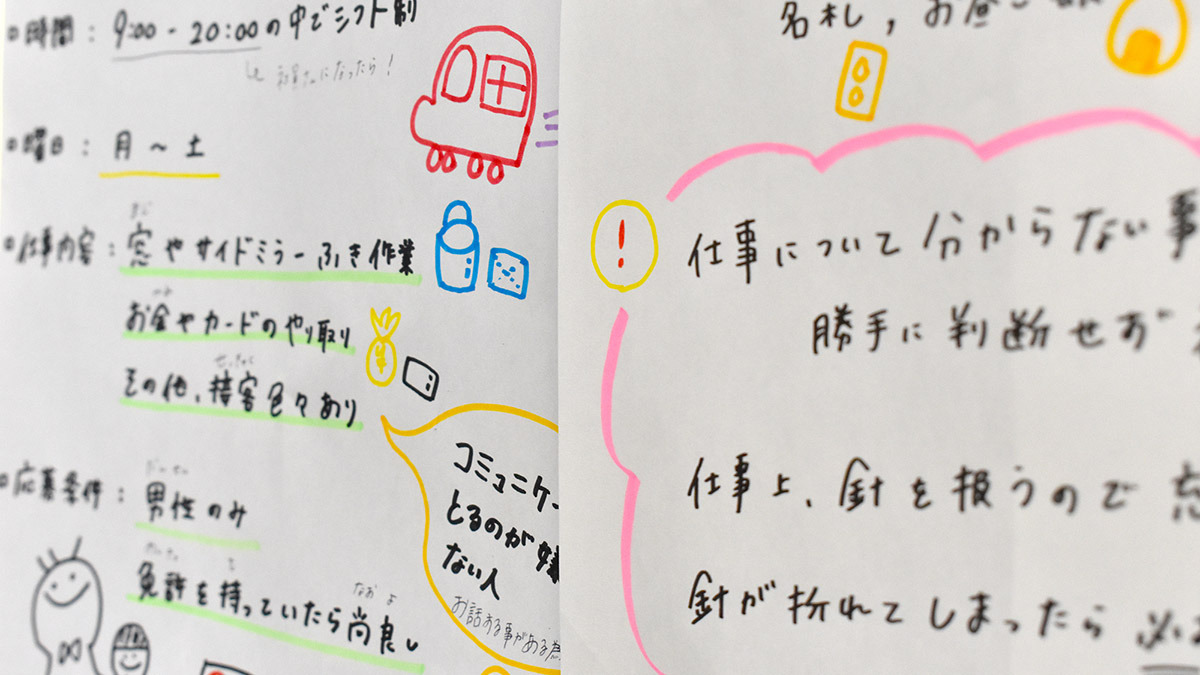 時間：9:00 - 20:00の中でシフト制
社員さんになったら！
曜日：月～土
まど
仕事内容：窓やサイドミラーふき作業
お金やカードのやり取り
せっきゃく
その他、接客色々あり
コミュニケー
とるのが嫌
ない人
お話する事がある為
応募条件：男性のみ
なお よ
免許を持っていたら尚良し
名札，お昼
!
仕事について分からない事
勝手に判断せず
仕事上、針を扱うので
針が折れてしまったら 必